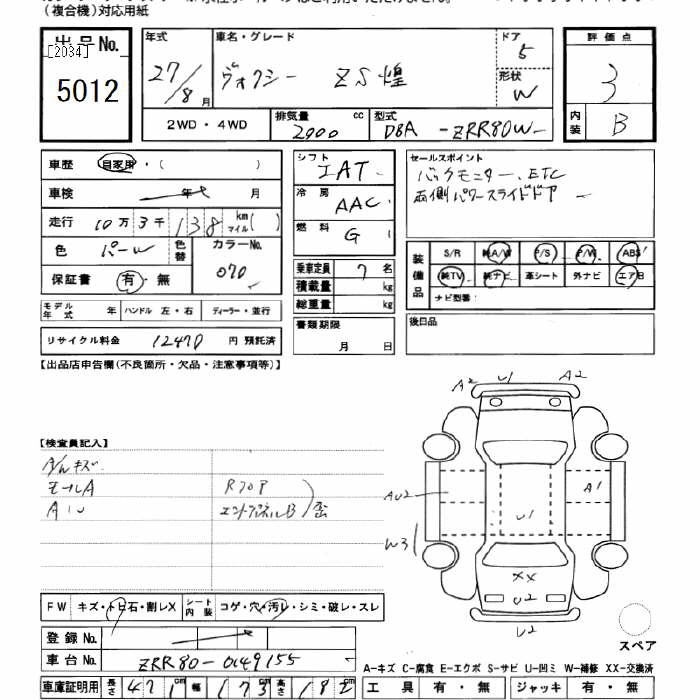 (複合機)対応用紙
出品No. [2034]
5012
年式 27/8月
車名・グレード ヴォクシー ZS煌
ドア 5
形状 W
評価点 3
内装 B
2WD・4WD
排気量 2000 cc
型式 DBA-ZRR80W
車歴 自家用・( )
車検 年 月
走行 10万3千138 km マイル( )
色 パール 色替 カラーNo. 070
保証書 有・無
シフト IAT
冷房 AAC
燃料 G
乗車定員 7名
積載量 kg
総重量 kg
書類期限 月 日
セールスポイント
バックモニター、ETC
両側パワースライドドア
装備品 S/R 純A/W P/S P/W ABS
純TV 純ナビ 革シート 外ナビ エアB
ナビ型番:
後日品
モデル年式 年 ハンドル 左・右 ディーラー・並行
リサイクル料金 12470 円 預託済
【出品店申告欄(不良箇所・欠品・注意事項等)】
【検査員記入】
A/Wキズ
モールA
AU
Rフロア
エンドパネルB 歪
A2 U1 A2
AU2 A1
W3 U1
XX
U2
U2
FW キズ・トビ石・割レX シート内装 コゲ・穴・汚レ・シミ・破レ・スレ
登録No.
車台No. ZRR80-0149155
スペア
A-キズ C-腐食 E-エクボ S-サビ U-凹ミ W-補修 XX-交換済
車庫証明用 長さ 471cm 幅 173cm 高さ 182
工具 有・無 ジャッキ 有・無